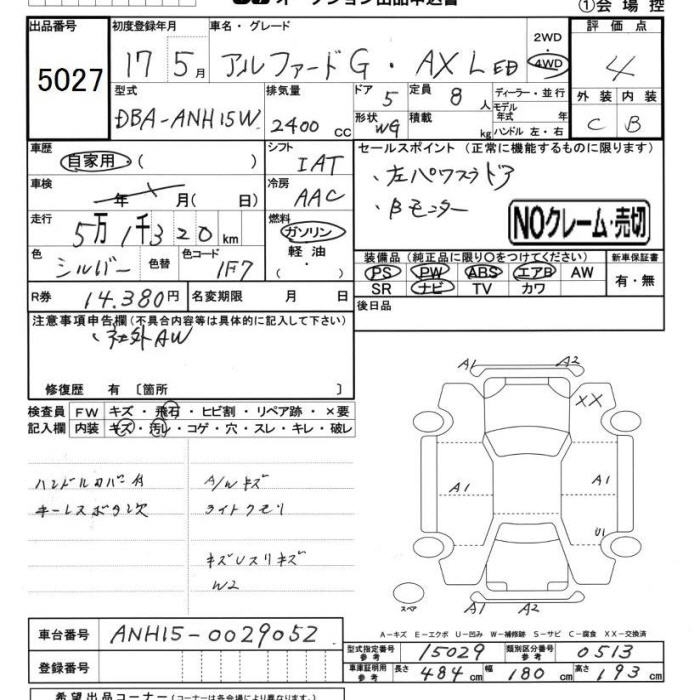 オークション出品申込書
①会場控
出品番号 初度登録年月 車名・グレード 2WD 評価点
5027 17 5月 アルファードG・AX L ED 4WD 4
型式 排気量 ドア 5 定員 8人 ディーラー・並行 外装 内装
DBA-ANH15W 2400cc 形状 WG 積載 kg モデル年式 年 ハンドル 左・右 C B
車歴 自家用 ( ) シフト IAT セールスポイント (正常に機能するものに限ります)
車検 年 月(日) 冷房 AAC ・左パワスラドア
・Bモニター
走行 5万1千320km 燃料 ガソリン NOクレーム・売切
色 シルバー 色替 色コード 1F7 軽油・( ) 装備品(純正品に限り○をつけてください) 新車保証書
PS PW ABS エアB AW 有・無
R券 14,380円 名変期限 月 日 SR ナビ TV カワ
注意事項申告欄(不具合内容等は具体的に記入して下さい) 後日品
・社外AW
修復歴 有 〔箇所 〕
検査員 FW キズ・飛石・ヒビ割・リペア跡・×要
記入欄 内装 キズ・汚レ・コゲ・穴・スレ・キレ・破レ
ハンドルカバー付 A/Wキズ
キーレスボタン欠 ライトクモリ
キズUスリキズ
W2
A1 A2
XX
A1 A1 A1
U1
スペア
A1 A2
A-キズ E-エクボ U-凹み W-補修跡 S-サビ C-腐食 XX-交換済
車台番号 ANH15-0029052
型式指定番号 参考 15029 類別区分番号 参考 0513
登録番号 車庫証明用 参考 長さ 484cm 幅 180cm 高さ 193cm
希望出品コーナー(コーナー名は各会場により異なります)